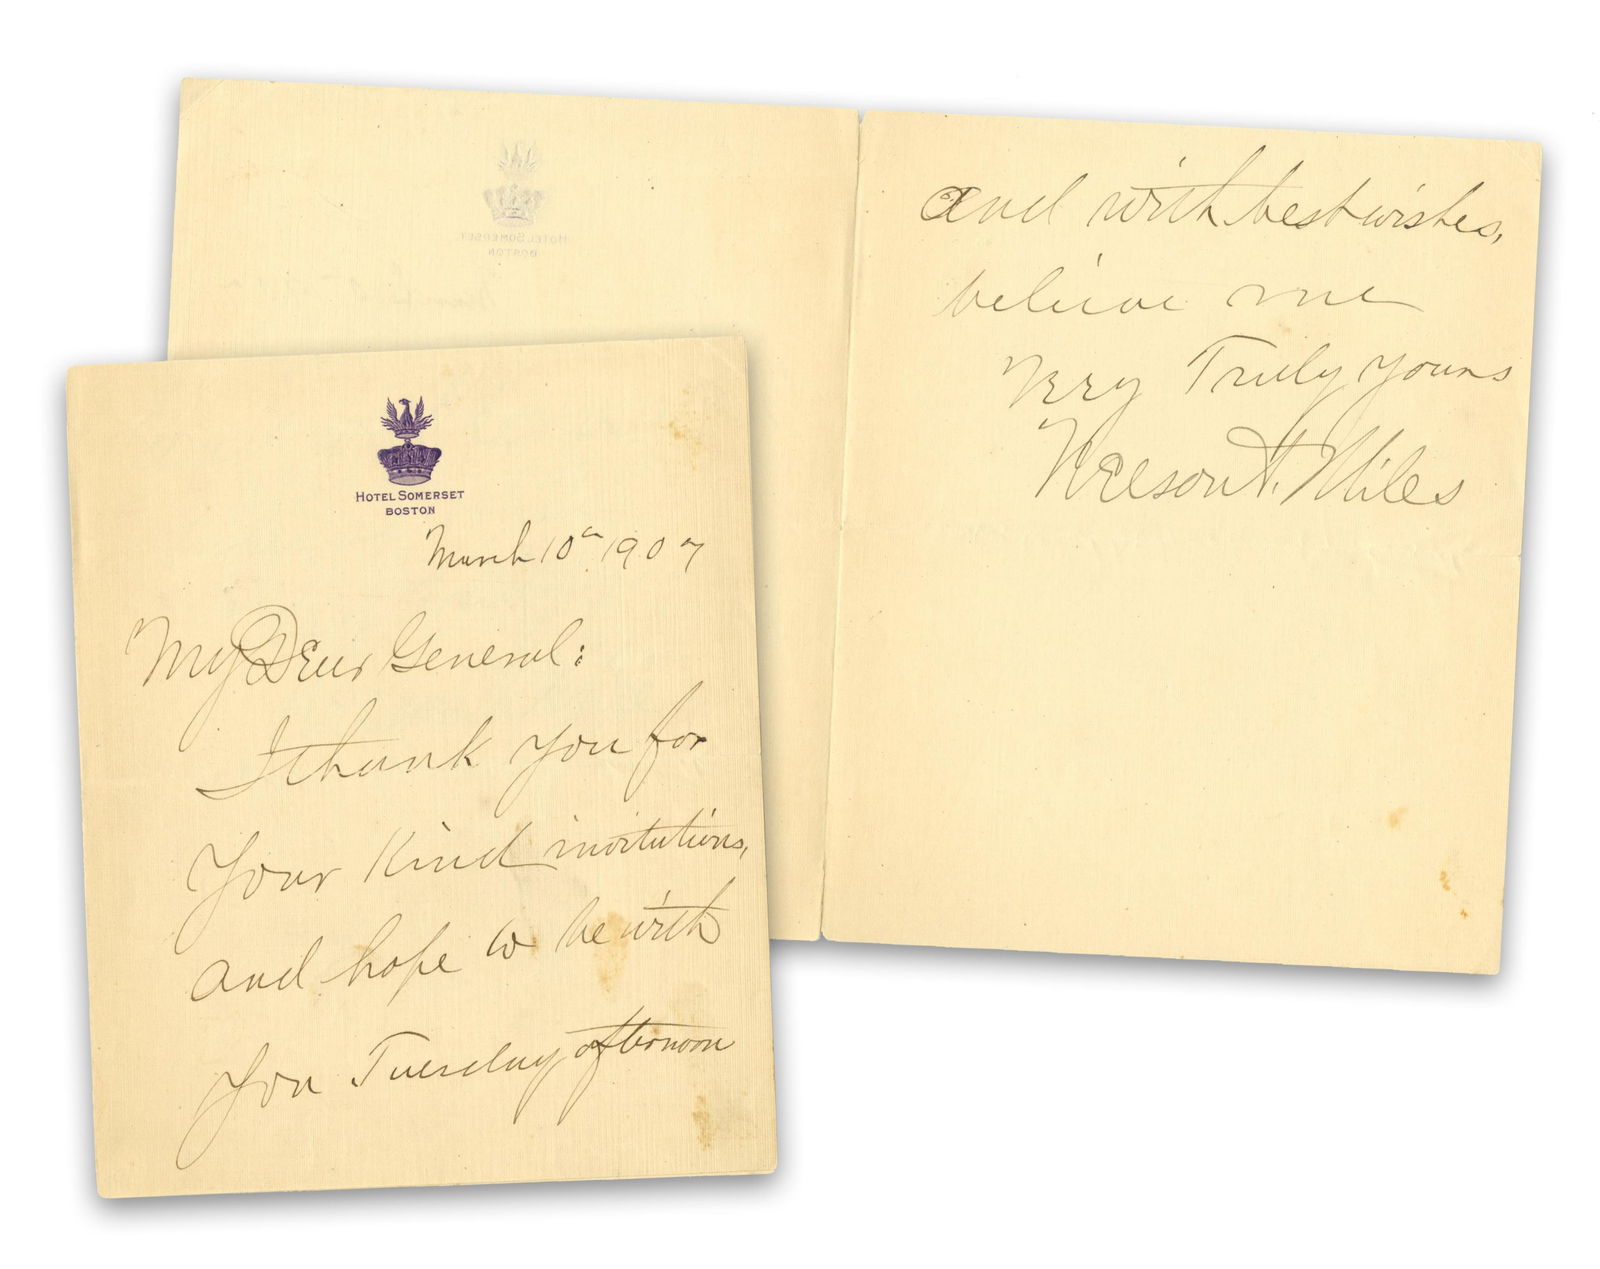 HOTEL SOMERSET
BOSTON
March 10th 1907
My Dear General:
I thank you for
your kind invitations,
and hope to be with
you Tuesday afternoon
and with best wishes,
believe me
Very Truly yours
Nelson A. Miles
HOTEL SOMERSET
BOSTON